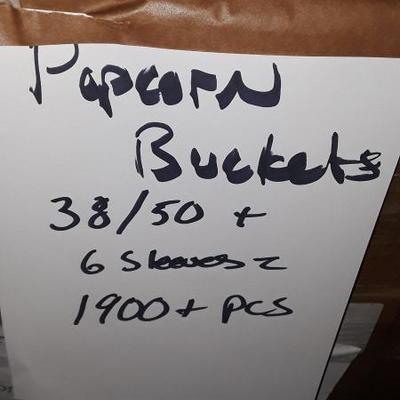 Popcorn
Buckets
38/50 +
6 Sleeves =
1900+ PCS